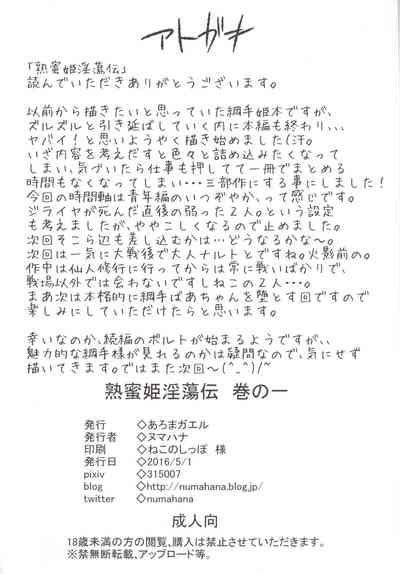 アトガキ
「熟蜜姫淫蕩伝」
読んでいただきありがとうございます。
以前から描きたいと思っていた綱手姫本ですが、
ズルズルと引き延ばしていく内に本編も終わり、、、
ヤバイ!と思いようやく描き始めました(汗。
いざ内容を考えだすと色々と詰め込みたくなって
しまい、気づいたら仕事も押してて一冊でまとめる
時間もなくなってしまい・・・三部作にする事にしました!
今回の時間軸は青年編のいつぞやか、って感じです。
ジライヤが死んだ直後の弱った2人。という設定
も考えましたが、ややこしくなるので止めました。
次回そこら辺も差し込むかは…どうなるかな~。
次回は一気に大戦後で大人ナルトとですね。火影前の。
作中は仙人修行に行ってからは常に戦いばかりで、
戦場以外では会わないですしねこの2人・・・。
まあ次は本格的に綱手ばあちゃんを堕とす回ですので
楽しみにしていただけたらと思います。
幸いなのか、続編のボルトが始まるようですが、、
魅力的な綱手様が見れるのかは疑問なので、気にせず
描いてきます。ではまた次回~(^_^)/~
熟蜜姫淫蕩伝 巻の一
発行 ◇あろまガエル
発行者 ◇ヌマハナ
印刷 ◇ねこのしっぽ 様
発行日 ◇2016/5/1
pixiv ◇315007
blog ◇http://numahana.blog.jp/
twitter ◇numahana
成人向
18歳未満の方の閲覧、購入は禁止させていただきます。
※禁無断転載、アップロード等。